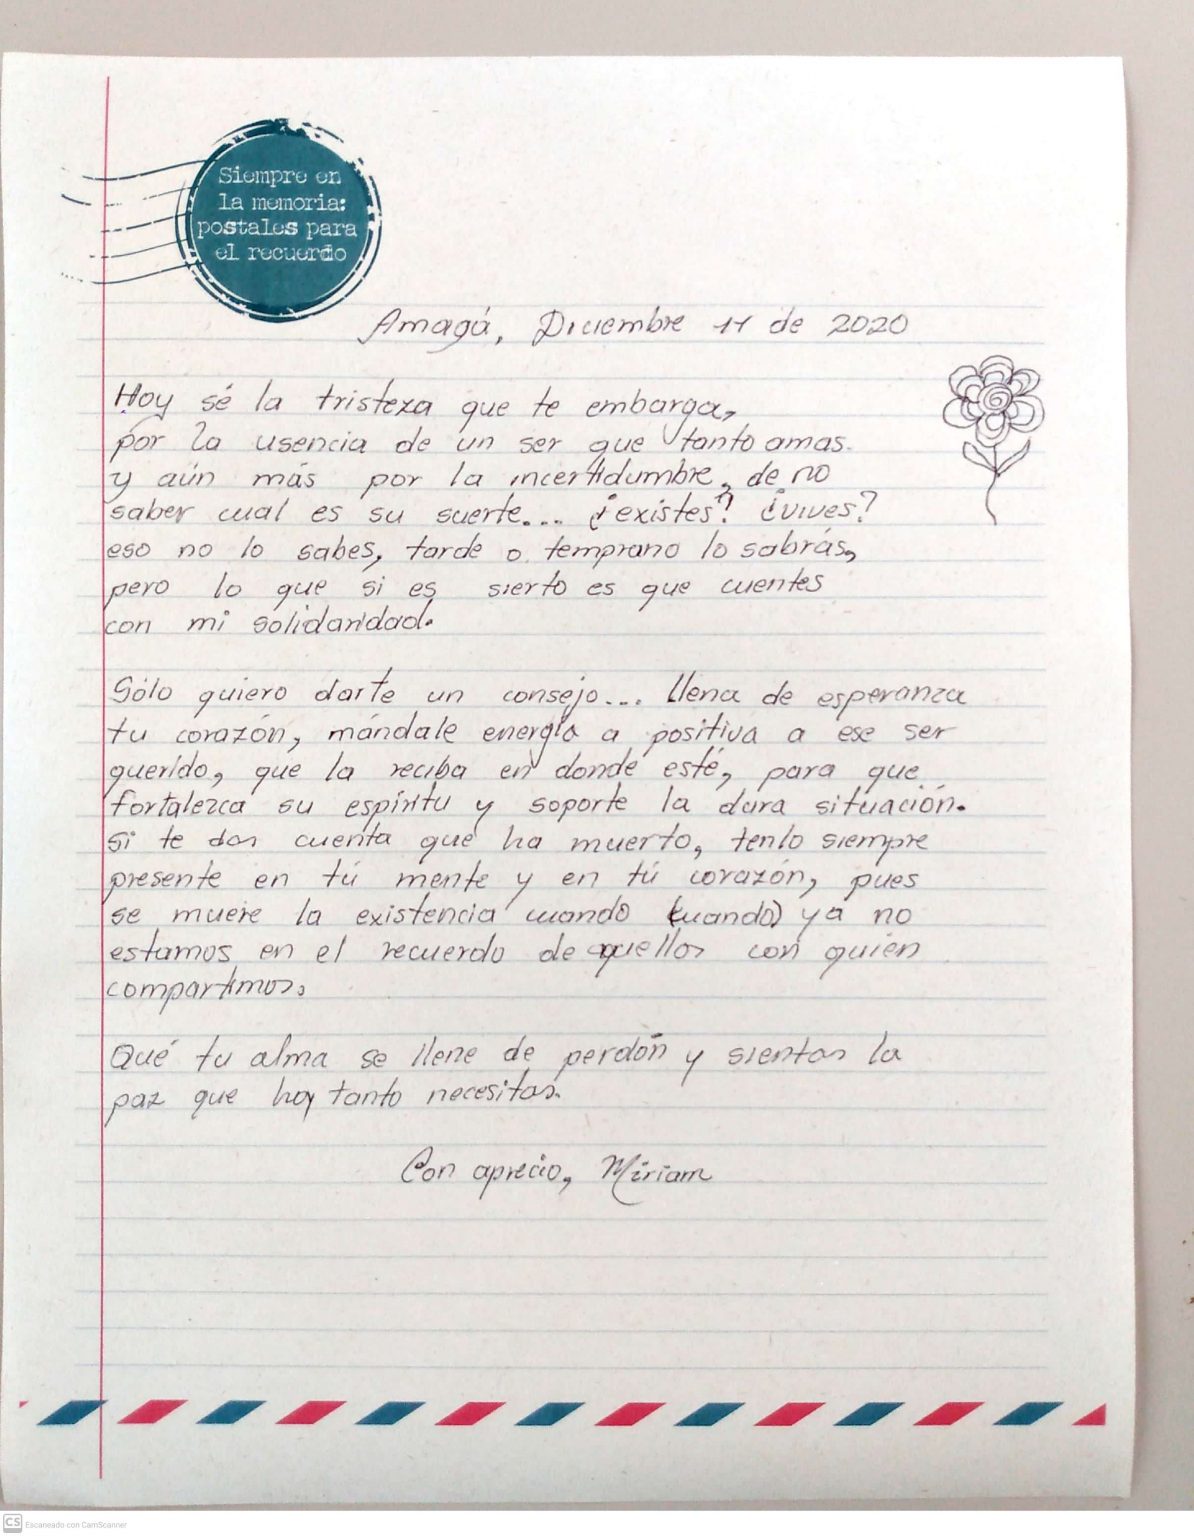 Siempre en
la memoria:
postales para
el recuerdo
Amagá, Diciembre 11 de 2020
Hoy sé la tristeza que te embarga,
por la usencia de un ser que tanto amas.
y aún más por la incertidumbre, de no
saber cual es su suerte... ¿existes? ¿vives?
eso no lo sabes, tarde o temprano lo sabrás,
pero lo que si es sierto es que cuentes
con mi solidaridad.
Sólo quiero darte un consejo... llena de esperanza
tu corazón, mándale energía a positiva a ese ser
querido, que la reciba en donde esté, para que
fortalezca su espíritu y soporte la dura situación.
Si te das cuenta que ha muerto, tenlo siempre
presente en tú mente y en tú corazón, pues
se muere la existencia cuando (cuando) ya no
estamos en el recuerdo de aquellos con quien
compartimos.
Qué tu alma se llene de perdón y sientas la
paz que hoy tanto necesitas.
Con aprecio, Miriam
CS Escaneado con CamScanner